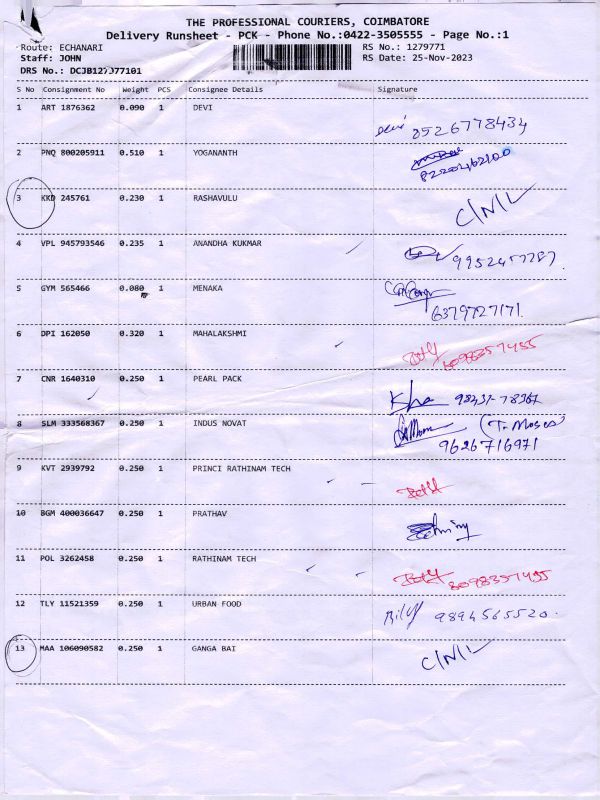 THE PROFESSIONAL COURIERS, COIMBATORE
Delivery Runsheet - PCK - Phone No.:0422-3505555 - Page No.:1
Route: ECHANARI RS No.: 1279771
Staff: JOHN RS Date: 25-Nov-2023
DRS No.:
S No Consignment No Weight PCS Consignee Details Signature
1 ART 1876362 0.090 1 DEVI Devi 8526778434
2 PNQ 800205911 0.510 1 YOGANANTH
3 KKD 245761 0.230 1 RASHAVULU C/N/L
4 VPL 945793546 0.235 1 ANANDHA KUKMAR
5 GYM 565466 0.080 1 MENAKA 6379727171.
6 DPI 162050 0.320 1 MAHALAKSHMI 8098357455
7 CNR 1640310 0.250 1 PEARL PACK
8 SLM 333568367 0.250 1 INDUS NOVAT (T. Moses)
9626716971
9 KVT 2939792 0.250 1 PRINCI RATHINAM TECH
10 BGM 400036647 0.250 1 PRATHAV
11 POL 3262458 0.250 1 RATHINAM TECH 8098357455
12 TLY 11521359 0.250 1 URBAN FOOD 9894565520.
13 MAA 106090582 0.250 1 GANGA BAI C/N/L